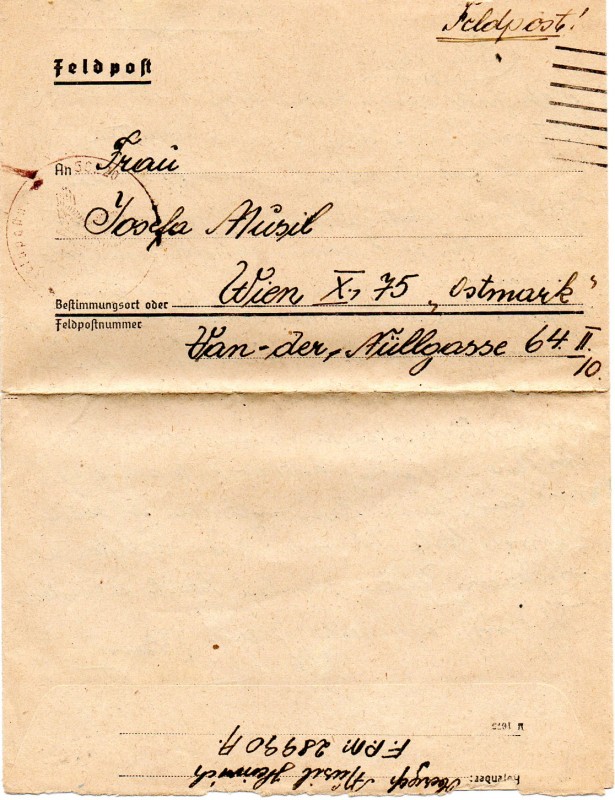 Feldpost!
Feldpost
An Frau
Josefa Musil
Bestimmungsort oder Wien X, 75 "Ostmark"
Feldpostnummer
Van-der-Nüllgasse 64 II
10.
Absender: Musil Heinrich
F.P.M. 28990 A.